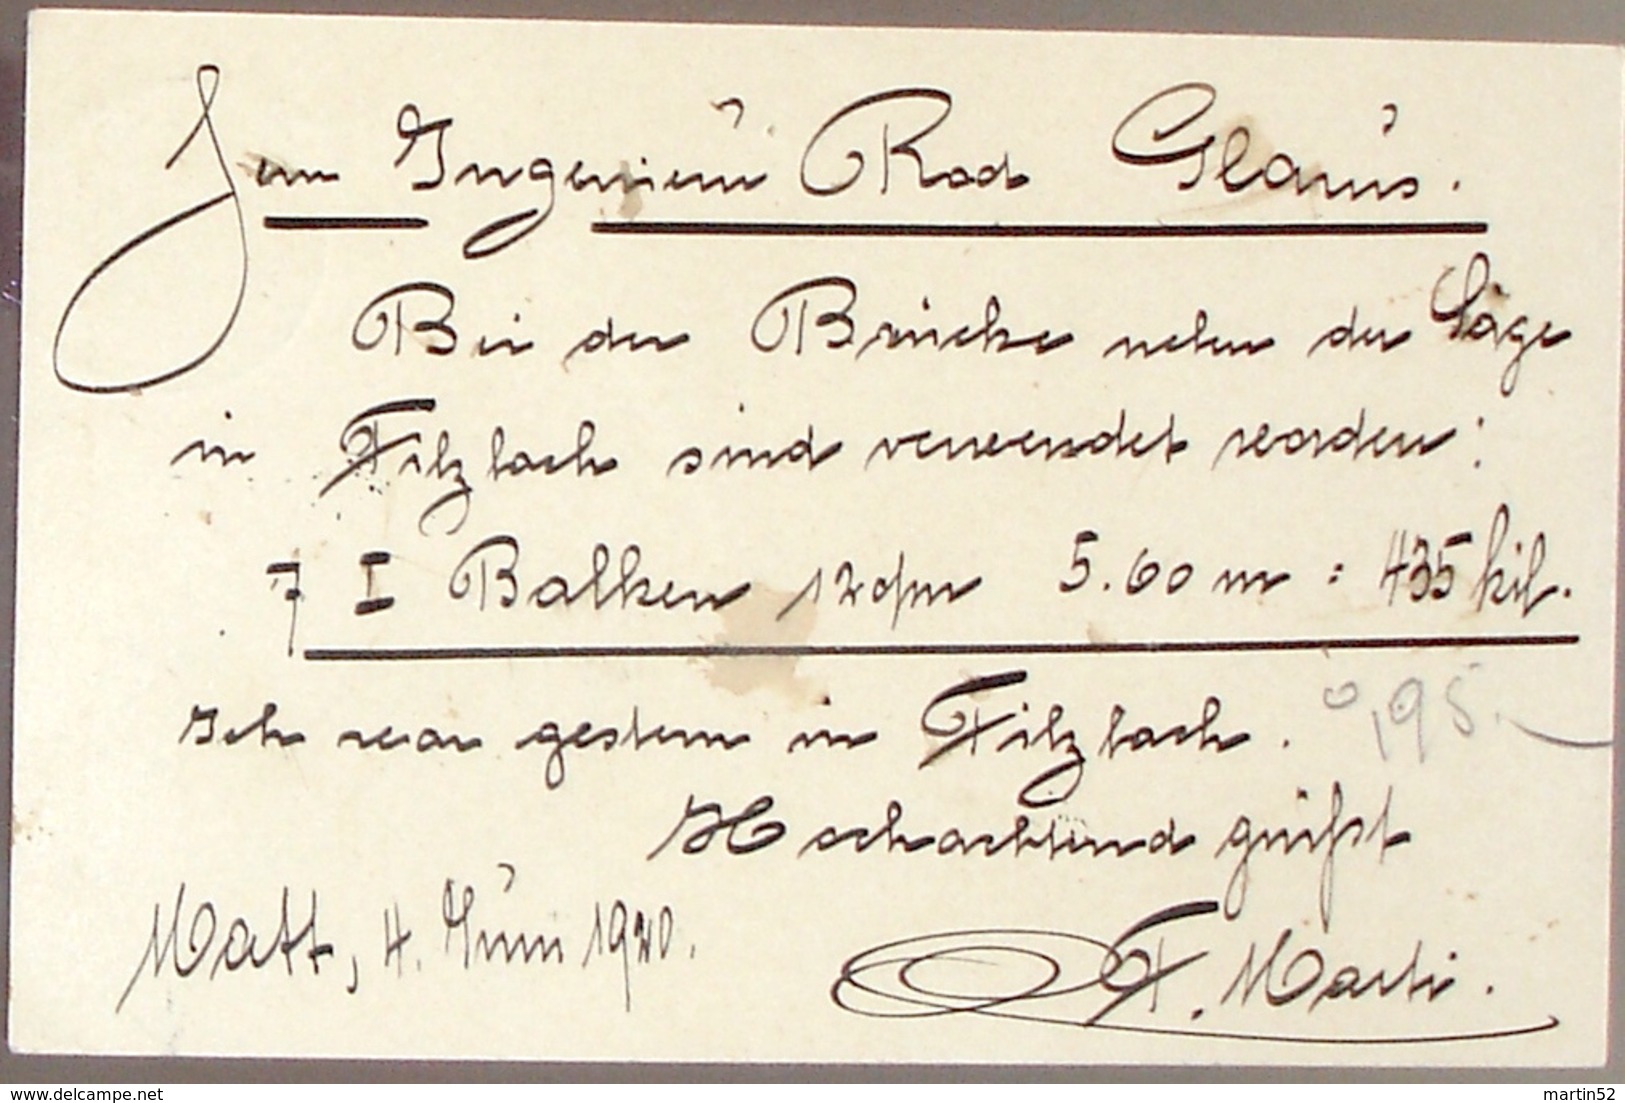 Herrn Ingenieur Rod Glarus.
Bei der Brücke neben der Säge
in Filzbach sind verwendet worden:
7 I Balken 12 c/m 5.60 m : 435 kil.
Ich war gestern in Filzbach. 0,195.
Hochachtend grüßt
Matt, 4. Juni 1920. F. Marti.
martin52